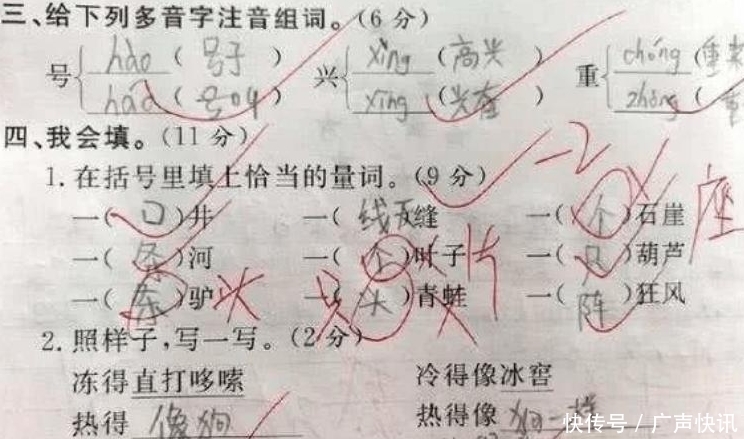 三、给下列多音字注音组词。(6分)
号 hào (号子) 兴 xìng (高兴) 重 chóng (重
háo (号叫) xīng (兴奋) zhòng (重
四、我会填。(11分)
1.在括号里填上恰当的量词。(9分) -2
一(口)井 一(线)缝 一(个)石崖 座
一(条)河 一(个)叶子 片 一(只)葫芦
一(条)驴 头 只 一(头)青蛙 一(阵)狂风
2.照样子,写一写。(2分)
冻得直打哆嗦 冷得像冰窖
热得 像狗 热得像 狗一样
快传号/广声快讯